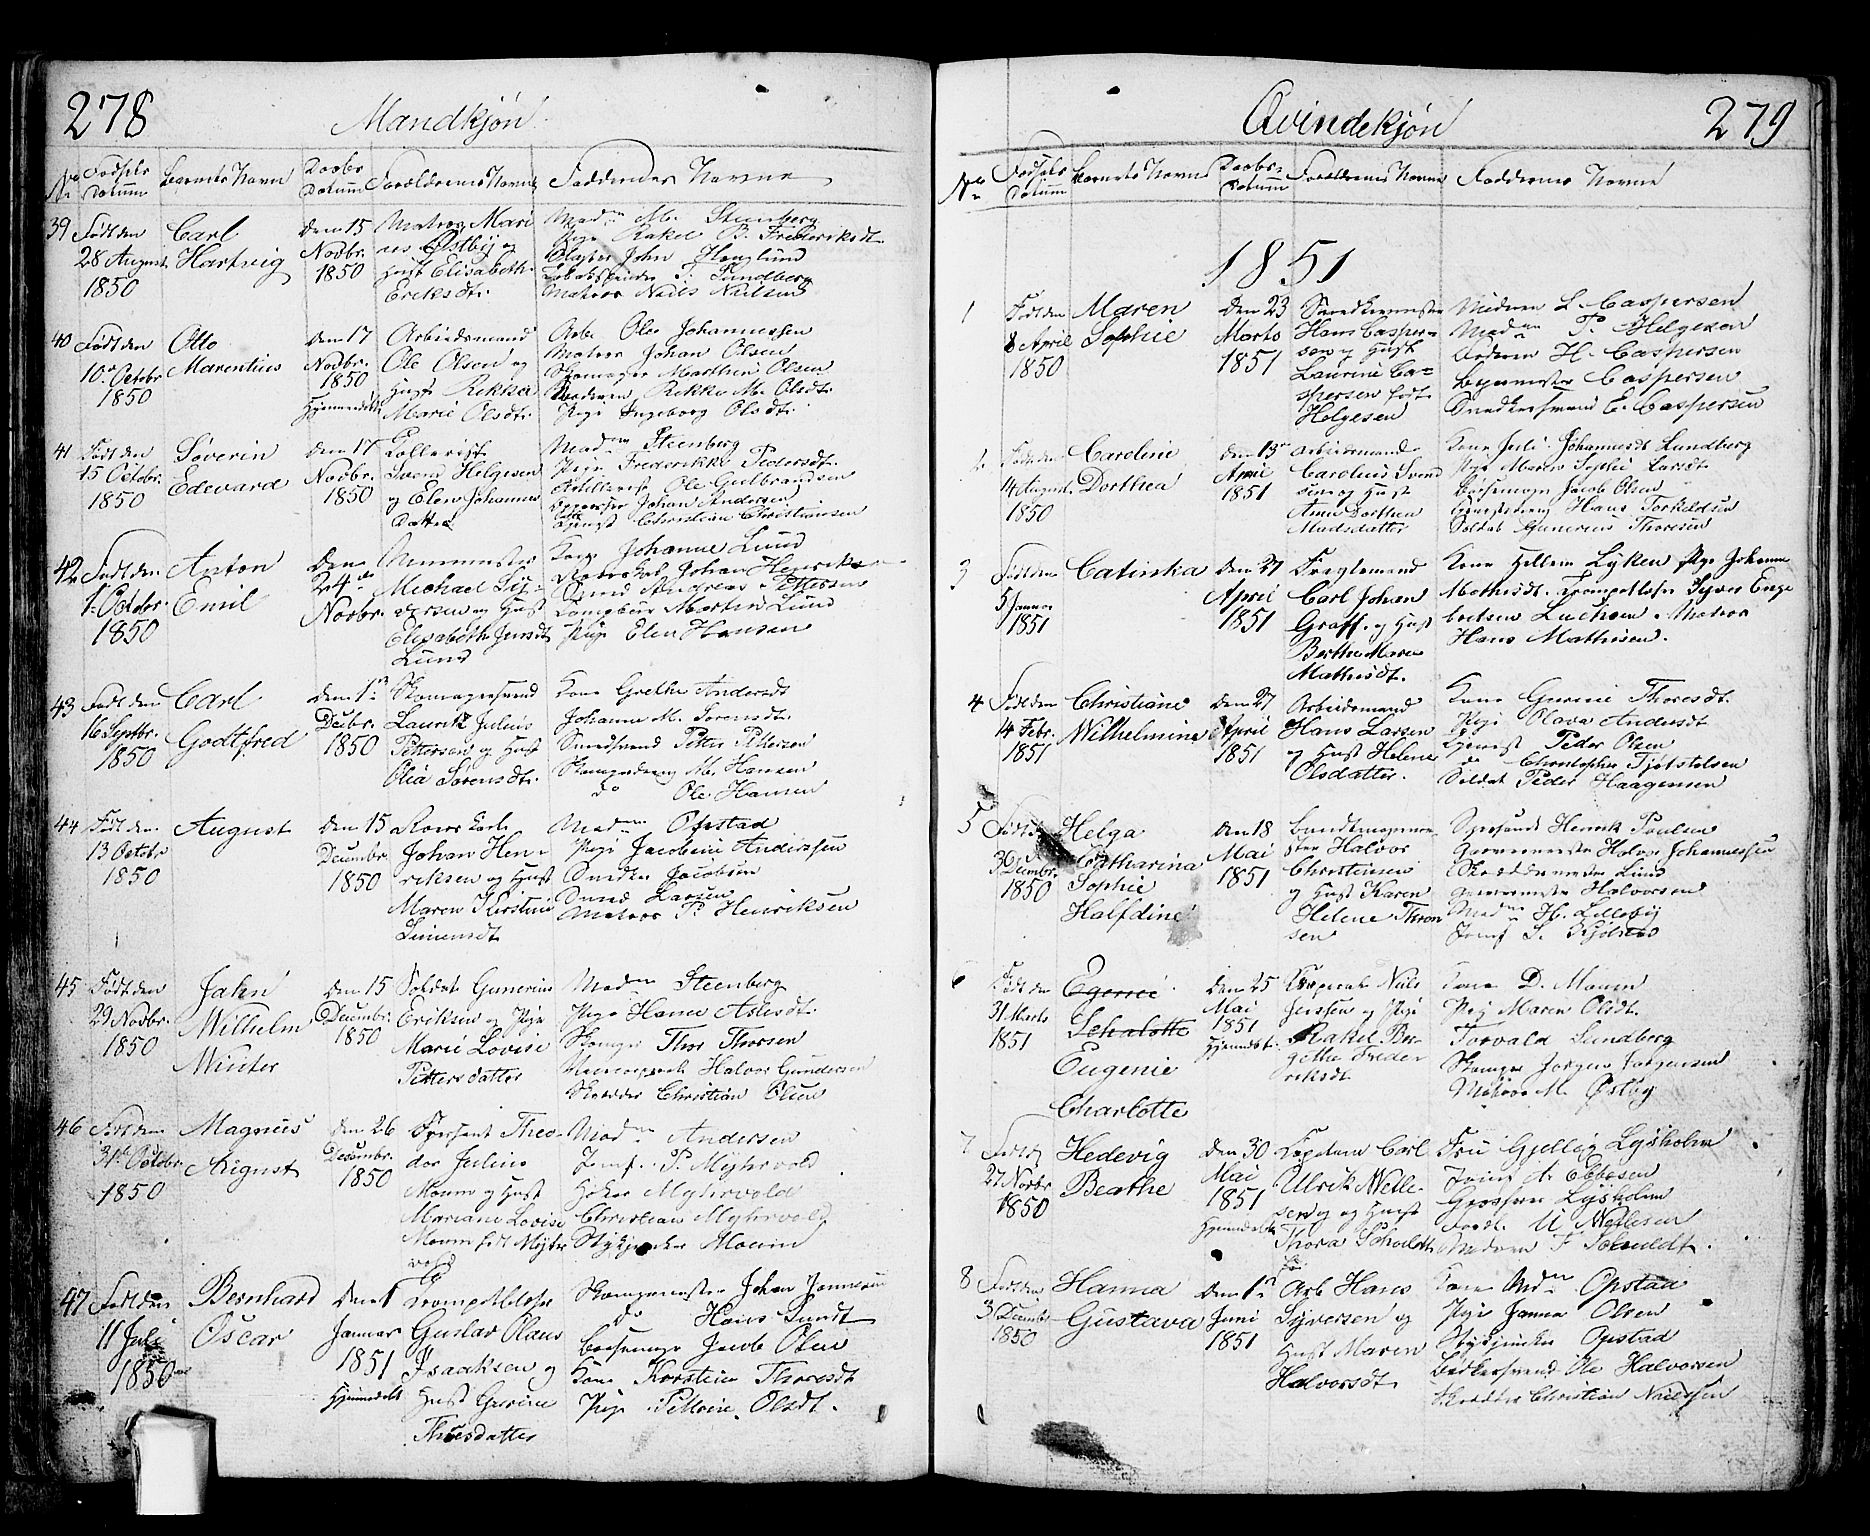 278
Mandkjøn
No
Fødsels Datum
Barnets Navn
Daabs Datum
Forældrenes Navne
Faddernes Navne
39 Født den 28 August 1850
Carl Hartvig
den 15 Novbr. 1850
Matros Mari
us Østby og
Hust Elisabeth
Eriksdtr.
Madm M. Steenberg
Pige Rakel B. Frideriksdt.
John Haglund
P. Sundberg
Matros Niels Nielsen
40 Født den 10 Octobr 1850
Otto Marentius
den 17 Novbr. 1850
Hjemmedøbt
Arbeidsmand
Ole Olsen og
Hust Rikka
Marie Olsdtr.
Arb. Ole Johannessen
Matros Johan Olsen
Skomager Mathius Olsen
Rikke M. Olsdt.
Pige Ingeborg Olsdt.
41 Født den 15 Octobr. 1850
Severin Edevard
den 17 Novbr. 1850
Svend Helgesen
og Elen Johannes
Datter
Madm Steenberg
Pige Frederikke Pedersdt.
Artillerist Ole Gulbrandsen
Johan Andersen
Christian Christiansen
42 Født den 1 Octobr. 1850
Anton Emil
den 24de Novbr.
Michael Sy-
versen og Hust
Elisabeth
Lund
Kone Johanne Lund
Johan Henriksen
Svend Andreas Pettersen
Martin Lund
Pige Elen Hansen
43 Født den 16 Septbr. 1850
Carl Godtfred
den 1ste Decbr. 1850
Skomagersvend
Lauritz Julius
Pettersen og Hust
Olia Sørensdt.
Kone Grethe Andersdt
Johanne M. Sørensdt.
Smedsvend Petter Pettersen
M. Hansen
do Ole Hansen
44 Født den 13 Octobr 1850
August
den 15 Decembr. 1850
Johan Hen-
riksen og Hust
Maren Kirstine
Simensdt
Madm Opstad
Pige Jacobine Anderssen
Snedker Jacobsen
Svend Larsen
Matros P. Henriksen
45 Født den 29 Novbr. 1850
Jahn Wilhelm Winter
den 15 Decembr. 1850
Soldat Gunerius
Eriksen og Pige
Marie Lovise
Pettersdatter
Madm Steenberg
Pige Hanna Aslesdt.
Skomgr Thor Thorsen
Halvor Gundersen
Skrædder Christian Olsen
46 Født den 31te Octobr. 1850
Magnus August
den 26 Decembr. 1850
Sersjant Theo-
dor Julius
Moum og Hust
Mariane Lovise
Moum født Myhr
vold
Madm Andersen
Jomf. P. Myhrvold
Høker Myhrvold
Christian Myhrvold
Stykjunker Moum
47 Født den 11 Juli 1850
Bernhard Oscar
den 1 Januar 1851
Hjemmedøbt
Gustav Olaus
Isaaksen og
Hust Gurine
Thoresdatter
Skomagermester Johan Jannesen
do Hans Sundt
Bøssemager Jacob Olsen
Kone Kirstine Thoresdt
Pige Petterine Olsdt.
279
Qvindekjøn
No
Fødsels Datum
Barnets Navn
Daabs-Datum
Forældrenes Navne
Faddernes Navne
1851
1 Født den 8 April 1850
Maren Sophie
den 23 Marts 1851
Snedkermester
Hans Casper-
sen og Hust
Laurine Ca-
spersen født
Helgesen
Madm L. Caspersen
Madm P. Helgesen
H. Caspersen
Caspersen
Snedkersvend E. Caspersen
2 Født den 14 August. 1850
Caroline Dorthea
den 13 April 1851
Arbeidsmand
Carolius Svend
sen og Hust
Anne Dorthea
Madsdatter
Kone Johannesdt Lundberg
Pige Maren Sophie Larsdt.
Bøssemager Jacob Olsen
Hans Torkildsen
Soldat Gunerius Thoresen
3 Født den 5 Januar 1851
Catinka
den 27 April 1851
Carl Johan
Graff og Hust
Berthe Maren
Mathisdt.
Kone Lyken Pige Johanne
Mathisdt. Trompetter Syver Enge
bretsen Matros
Hans Mathisen.
4 Født den 14 Febr. 1851
Christiane Wilhelmine
den 27 April 1851
Arbeidsmand
Hans Larsen
og Hust Helene
Olsdatter.
Kone Gurine Thoresdt.
Pige Olava Andersdt
Peder Olsen
do Christopher
Soldat Peder Haagensen
5 Født den 30 Decembr. 1850
Helga Catharina Sophie Halfdine
den 18 Mai 1851
Halvor
Christensen
og Hust Karen
Helene Thron
sen
Sersjant Henrik Poulsen
Garvermester Halvor Johannessen
Skræddermester Lund
Halvorsen
Madm H. Lilleby
Jomf S.
6 Født den 31 Marts 1851
Egenie Schalotte Eugenie Charlotte
den 25 Mai 1851
Hjemmedøbt
Niels
Jenssen og Pige
Rakel Ber-
gethe Freder
riksdt
Kone D. Moum
Pige Maren Olsdt.
Torvald Sundberg
Skomgr Jørgen Jørgensen
Matros M. Østby
7 Født 27 Novbr 1850
Hedevig Beathe
den 30 Mai 1851
Hjemmedøbt
Capitain Carl
Ulrik Niel-
sen og Hust
Thora Schuldt
Fru Lysholm
Jomf A. Ebbesen
Lysholm
U. Nielsen
F. Schuldt.
8 Født den 3 Decembr 1850
Hanna Gustava
den 1ste Juni 1851
Arb Hans
Syversen og
Hust Maren
Halvorsdt.
Kone Madm Opstad
Pige Janna Olsen
Stykjunker Opstad
Bødkersvend Ole Halvorsen
Skrædder Christian Nielssen